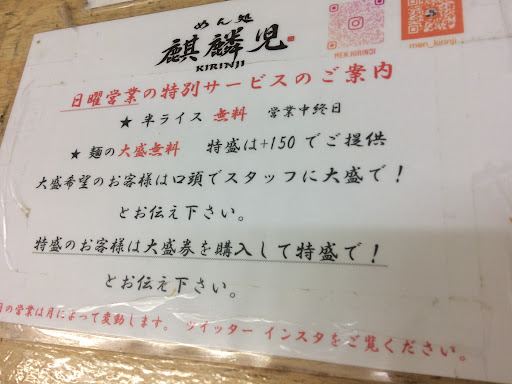 めん処
麒麟児
KIRINJI
MEN.KIRINJI
men_kirinji
日曜営業の特別サービスのご案内
★ 半ライス 無料 営業中終日
★ 麺の大盛無料 特盛は+150でご提供
大盛希望のお客様は口頭でスタッフに大盛で！
とお伝え下さい。
特盛のお客様は大盛券を購入して特盛で！
とお伝え下さい。
日の営業は月によって変動します。 ツイッター インスタをご覧ください。